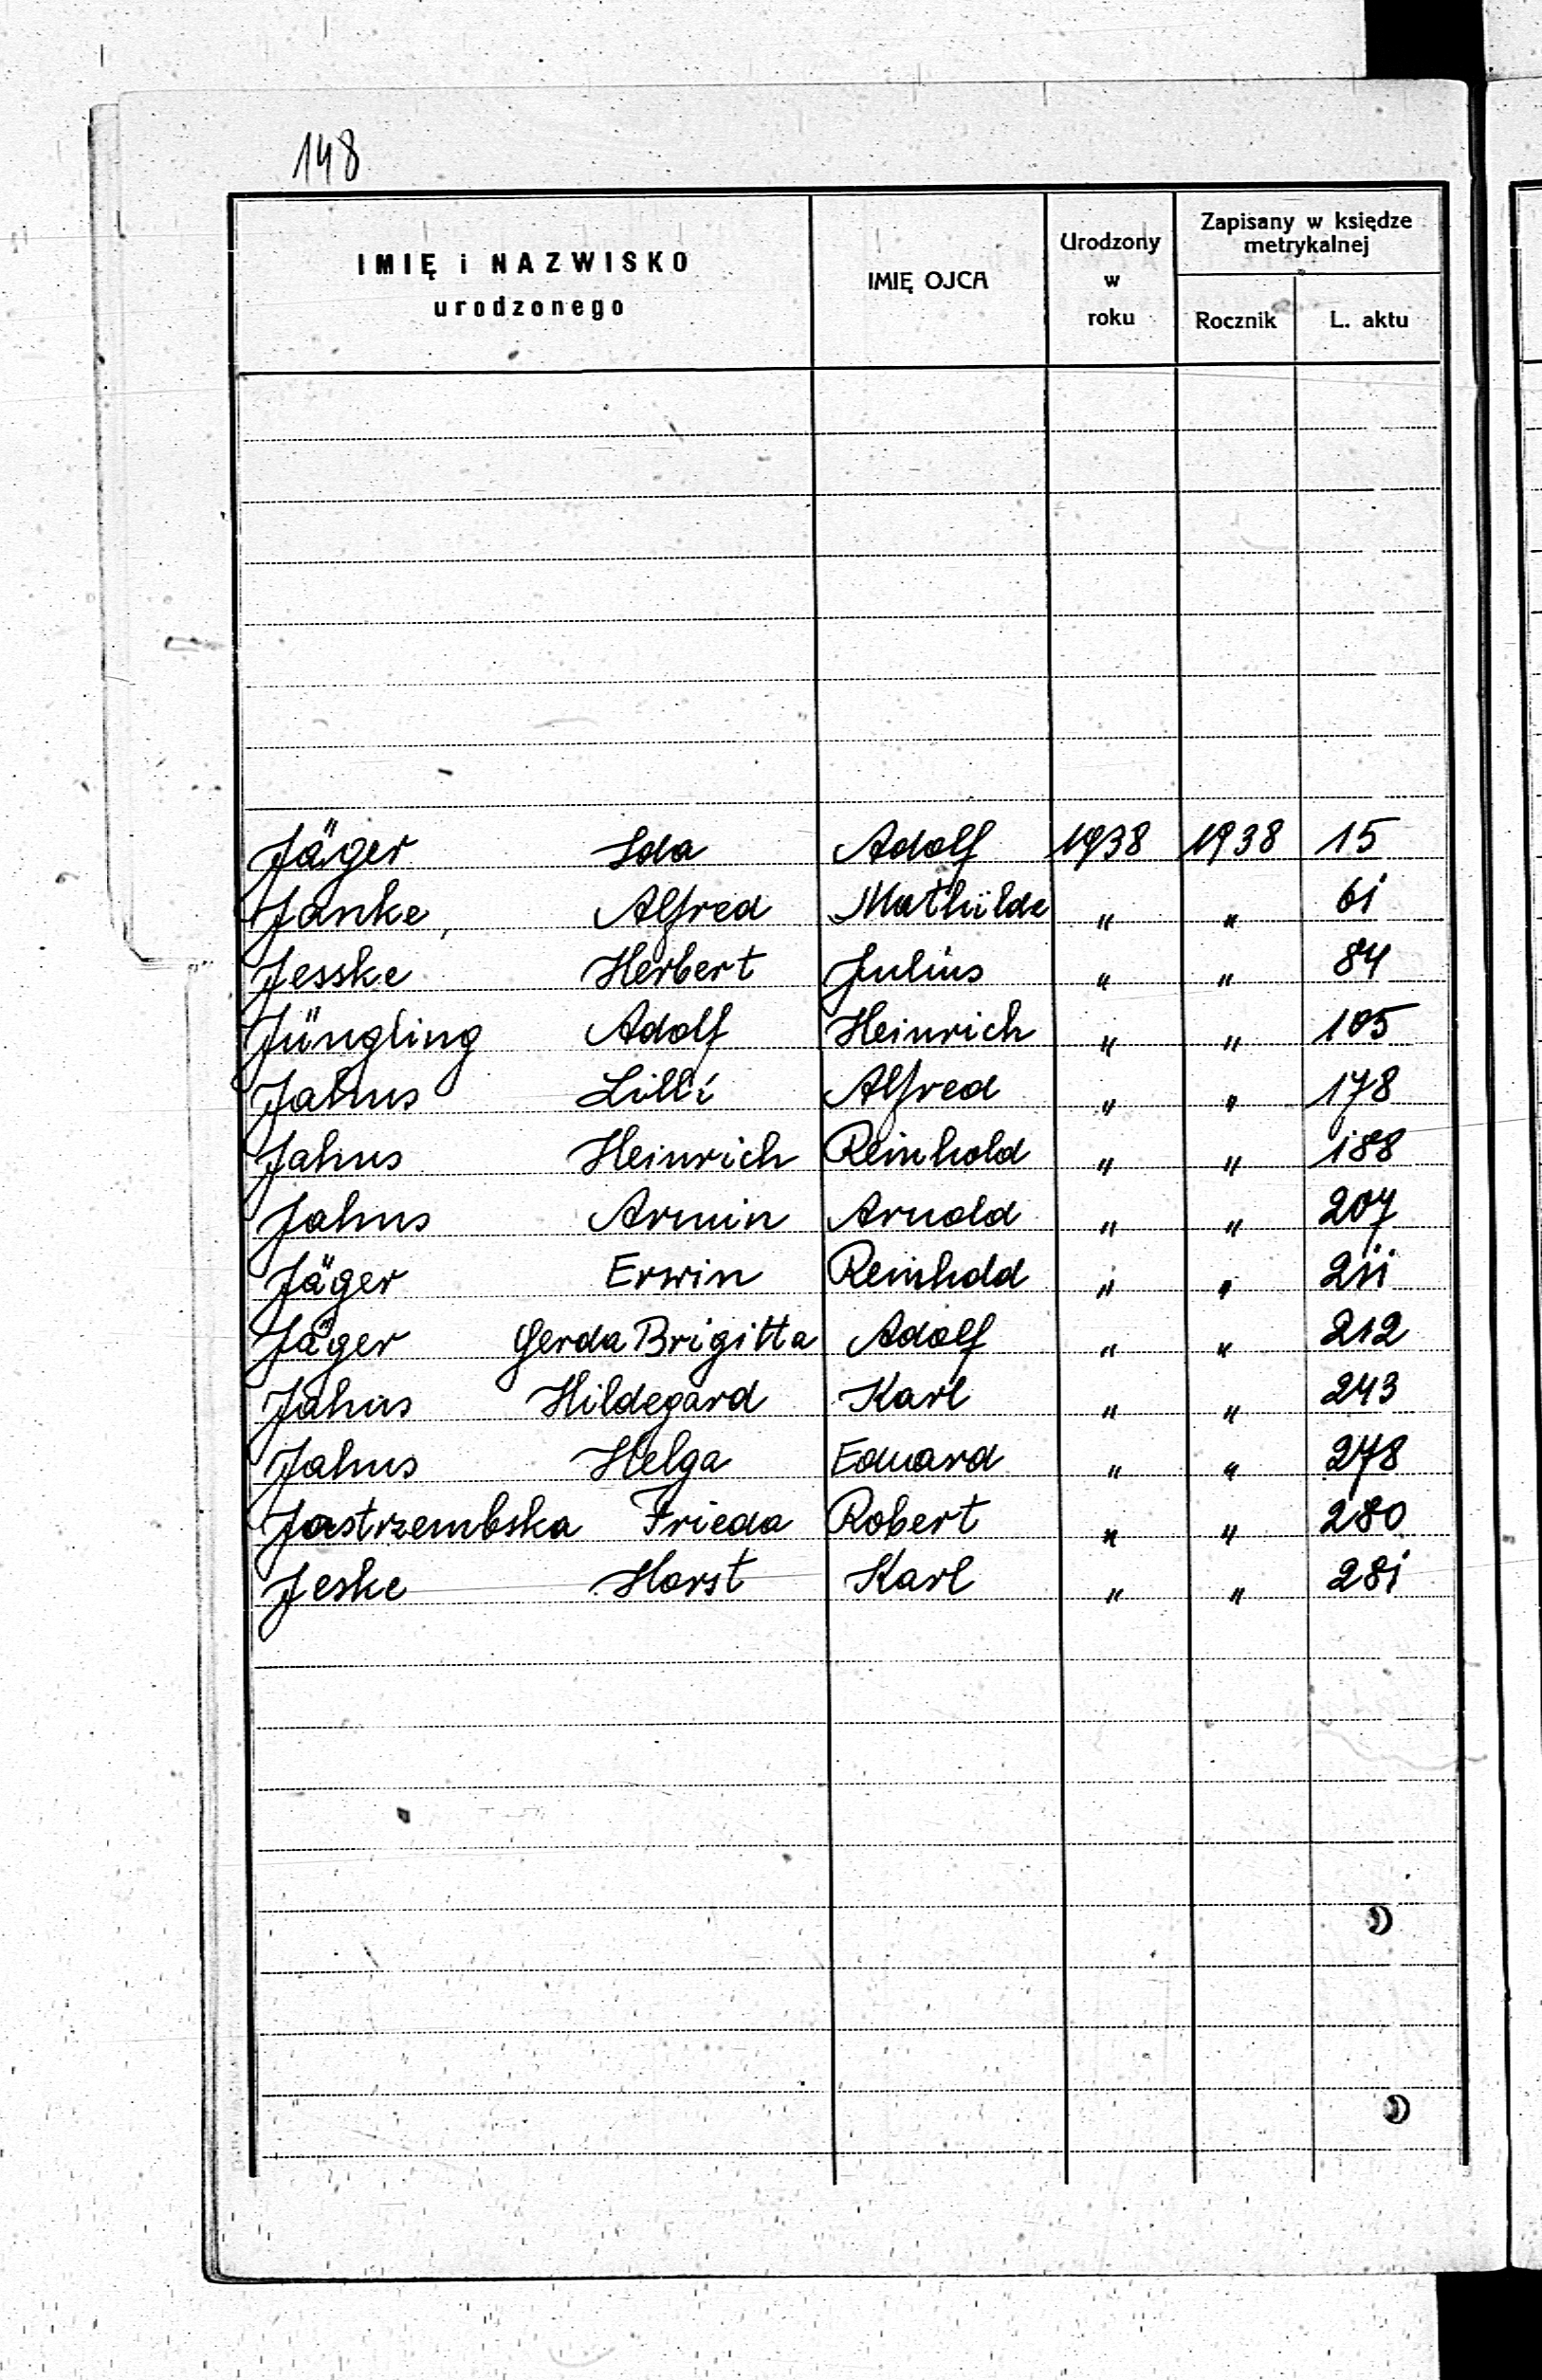 148
IMIĘ i NAZWISKO
urodzonego
IMIĘ OJCA
Urodzony
w
roku
Zapisany w księdze
metrykalnej
Rocznik
L. aktu
Jäger Ida Adolf 1938 1938 15
Janke, Alfred Mathilde " " 61
Jesske Herbert Julius " " 84
Jüngling Adolf Heinrich " " 105
Jahns Lilli Alfred " " 178
Jahns Heinrich Reinhold " " 188
Jahns Armin Arnold " " 207
Jäger Erwin Reinhold " " 211
Jäger Gerda Brigitta Adolf " " 212
Jahns Hildegard Karl " " 243
Jahns Helga Eduard " " 278
Jastrzembska Frieda Robert " " 280
Jeske Horst Karl " " 281